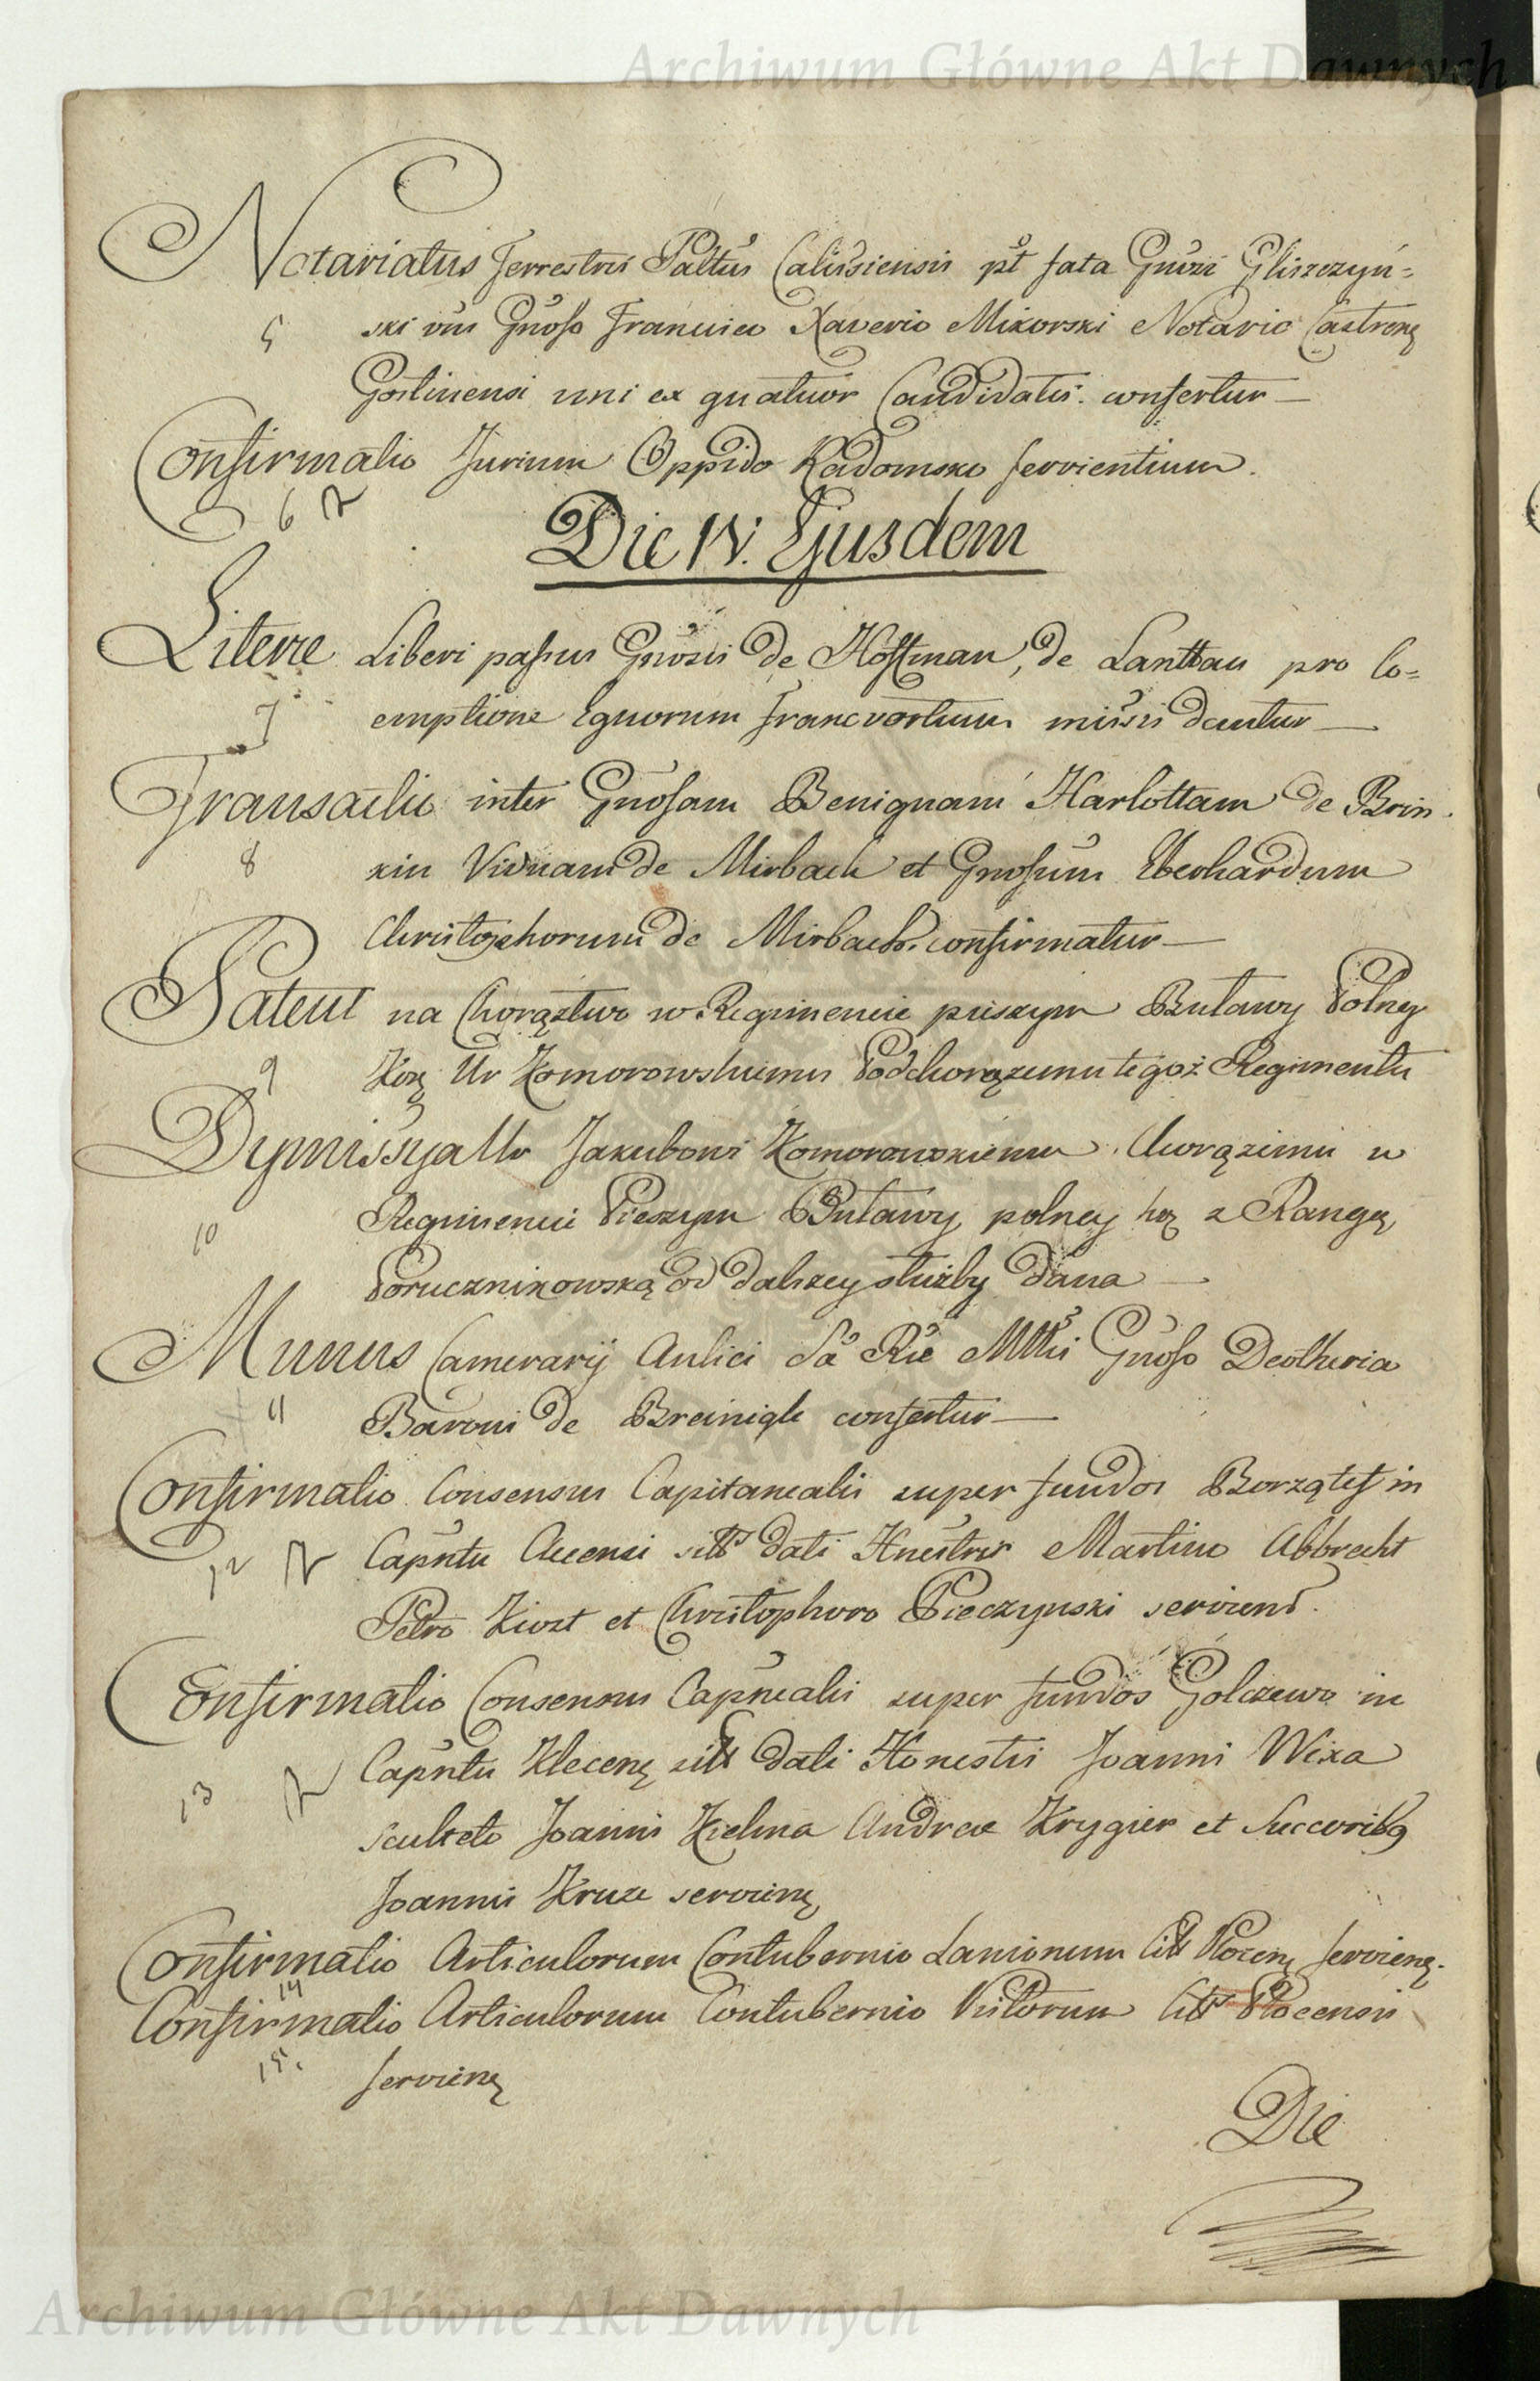 Archiwum Główne Akt Dawnych
Notariatus Terrestris Paltus Calissiensis pt fata Gnosi Gliszczyń=
5 ski vius Gnoso Francisco Xaverio Mikorski Notario Castrens
Gostinensi uni ex quatuor Candidatis confertur —
Confirmatio Jurium Oppido Radomsko servientium.
6
Die IV. Ejusdem
Literæ Liberi passus Gnosis de Hoffman, de Lanttau pro Co=
7 emptione Equorum Francvortum missis dantur —
Transactio inter Gnosam Benignam Karlottam de Brin
8 kin Viduam de Mirbach et Gnosum Eberhardum
Christophorum de Mirbach confirmatur —
Patent na Chorąstwo w Regimencie pieszym Buławy Polney
9 Kor Ur Komorowskiemu Podchorązemu tegoż Regimentu
Dymissya Ur Jakubowi Komorowskiemu Chorązemu w
10 Regimencie Pieszym Buławy polney kor z Rangą
Porucznikowską od dalszey służby dana —
Munus Camerarij Aulici Sa Rie Mttis Gnoso Deotheria
11 Baroni de Breinigk confertur —
Confirmatio Consensus Capitanealis super fundos Borzątef in
12 Capntu sitt dati Hnestis Martino Albrecht
Petro Ziozt et Christophoro Pieczynski servient.
Confirmatio Consensus Capnealis super fundos Golczewo in
13 Capntu Klecens sitt dati Honestis Joanni Wixa
sculteto Joanni Kielma Andreæ Krygier et Succoribq
Joannis Kruze serviens
Confirmatio Articulorum Contubernio Lanionum Citt Plocens serviens.
14
Confirmatio Articulorum Contubernio Pistorum Citt Plocensis
15. serviens
Die
Archiwum Główne Akt Dawnych